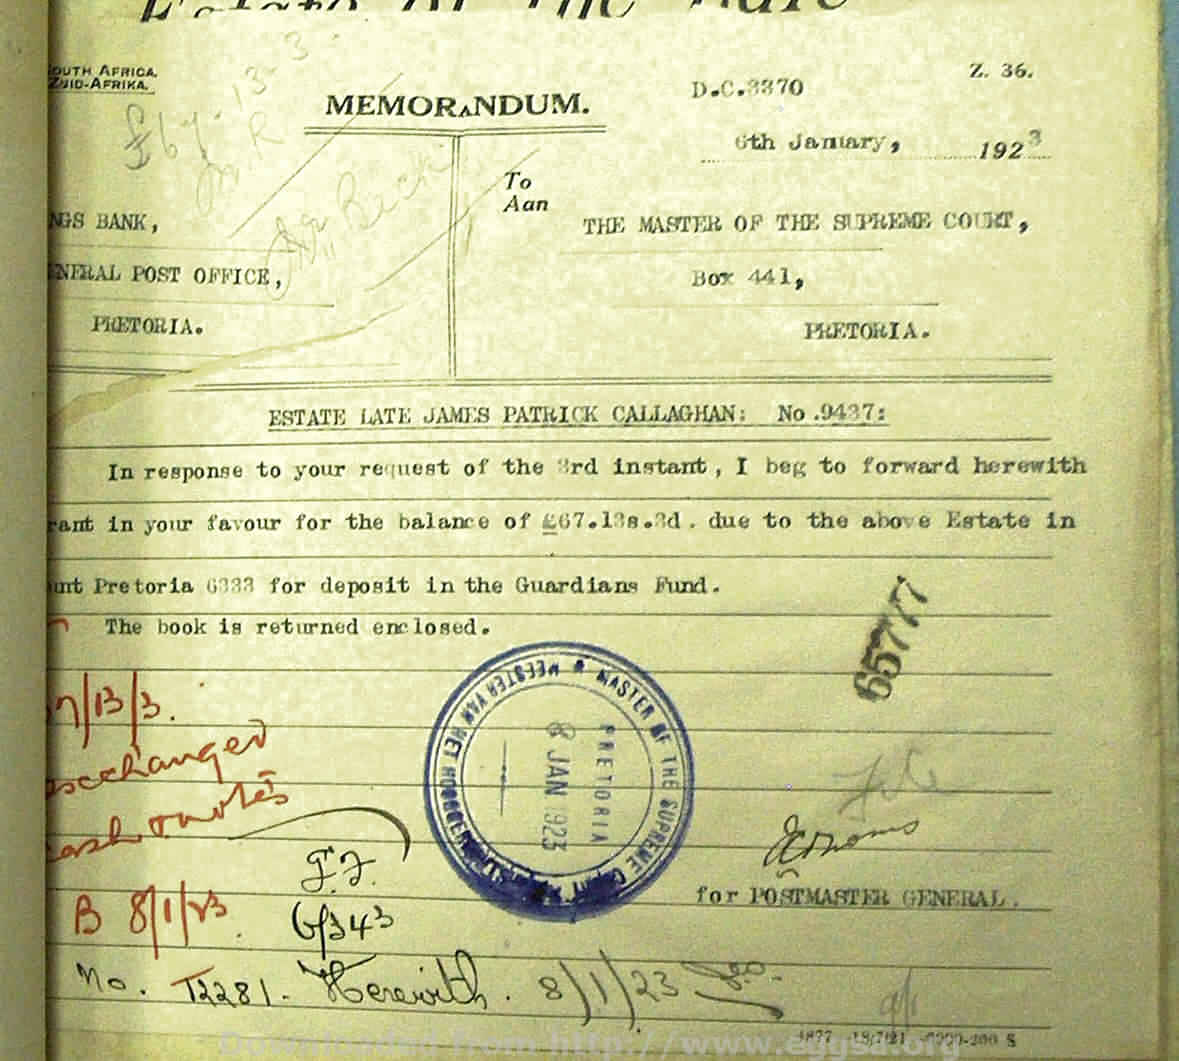 Estate of the Late
OUTH AFRICA.
ZUID-AFRIKA.
Z. 36.
D.C.3370
MEMORANDUM.
6th January, 1923
£67.13.3
Mr Beck
To
Aan
NGS BANK,
THE MASTER OF THE SUPREME COURT,
NERAL POST OFFICE,
Box 441,
PRETORIA.
PRETORIA.
ESTATE LATE JAMES PATRICK CALLAGHAN: No.9437:
In response to your request of the 3rd instant, I beg to forward herewith
rant in your favour for the balance of £67.13s.3d. due to the above Estate in
unt Pretoria 6333 for deposit in the Guardians Fund.
The book is returned enclosed.
65777
7/13/3.
exchanged
cash notes
MASTER OF THE SUPREME COURT
MEESTER VAN HET
PRETORIA
8 JAN 1923
for POSTMASTER GENERAL.
B 8/1/23
6/343
No. T2281. Herewith. 8/1/23
Downloaded from http://www.eggsa.org